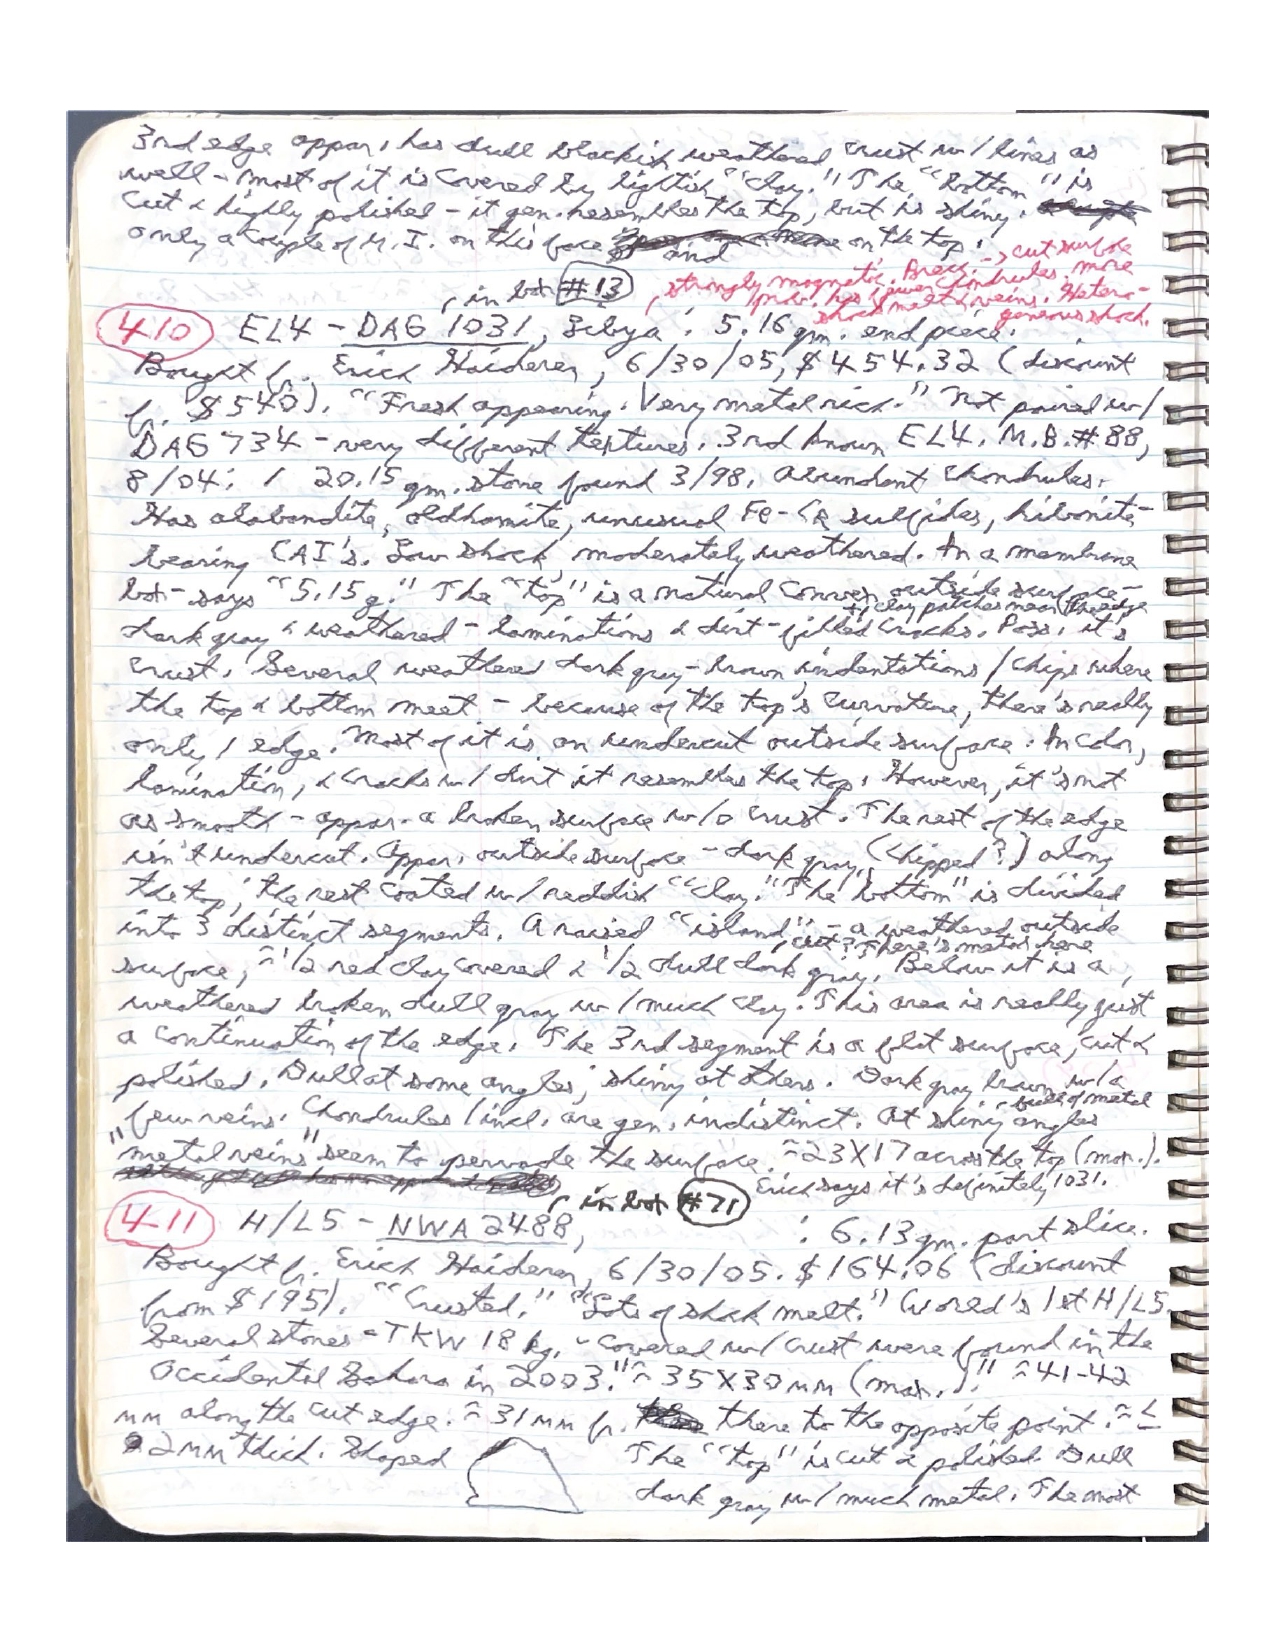 3rd edge appar. has dull blackish weathered crust w/ lines as
well - most of it is covered by lightish "clay." The "bottom" is
cut & highly polished - it gen. resembles the top, but is shiny.
only a couple of M.I. on this face and on the top.
in box #13
strongly magnetic. Brecc. → cut surface
prob. has fewer chondrules, more
shock melt & veins. Hetero-
geneous shock.
410 EL4 - DAG 1031, Libya: 5.16 gm. end piece.
Bought fr. Erich Haiderer, 6/30/05, $454.32 (discount
fr. $540). "Fresh appearing. Very metal rich." Not paired w/
DAG 734 - very different textures. 3rd known EL4. M.B. #88,
8/04: 1 20.15 gm. stone found 3/98. Abundant chondrules.
Has alabandite, oldhamite, unusual Fe-Cr sulfides, hibonite-
bearing CAI's. Low shock, moderately weathered. In a membrane
box - says "5.15g." The "top" is a natural convex outside surface -
+ clay patches near the edge
dark gray & weathered - laminations & dirt-filled cracks. Poss. it's
crust. Several weathered dark gray-brown indentations/chips where
the top & bottom meet - because of the top's curvature, there's really
only 1 edge. Most of it is an undercut outside surface. In color,
lamination, & cracks w/ dirt it resembles the top. However, it's not
as smooth - appar. a broken surface w/o crust. The rest of the edge
isn't undercut. Appar. outside surface - dark gray (chipped?) along
the top; the rest coated w/ reddish "clay." The "bottom" is divided
into 3 distinct segments. A raised "island" - a weathered outside
, cut? - there's metal here
surface, ~1/2 red clay covered & 1/2 dull dark gray. Below it is a
weathered broken dull gray w/ much clay. This area is really just
a continuation of the edge. The 3rd segment is a flat surface, cut &
polished. Dull at some angles, shiny at others. Dark gray brown w/ a
few veins. Chondrules/incl. are gen. indistinct. At shiny angles
- full of metal
"metal veins" seem to pervade the surface. ~23X17 across the top (max.).
Erich says it's definitely 1031.
in box #71
411 H/L5 - NWA 2488, : 6.13 gm. part slice.
Bought fr. Erich Haiderer, 6/30/05. $164.06 (discount
from $195). "Crusted." "Lots of shock melt." (World's 1st H/L5.
Several stones - TKW 18 kg. - covered w/ crust were found in the
Occidental Sahara in 2003." ~35X30 mm (max.)." ~41-42
mm along the cut edge. ~31 mm fr. there to the opposite point. ~≤
2 mm thick. Shaped The "top" is cut & polished. Dull
dark gray w/ much metal. The most